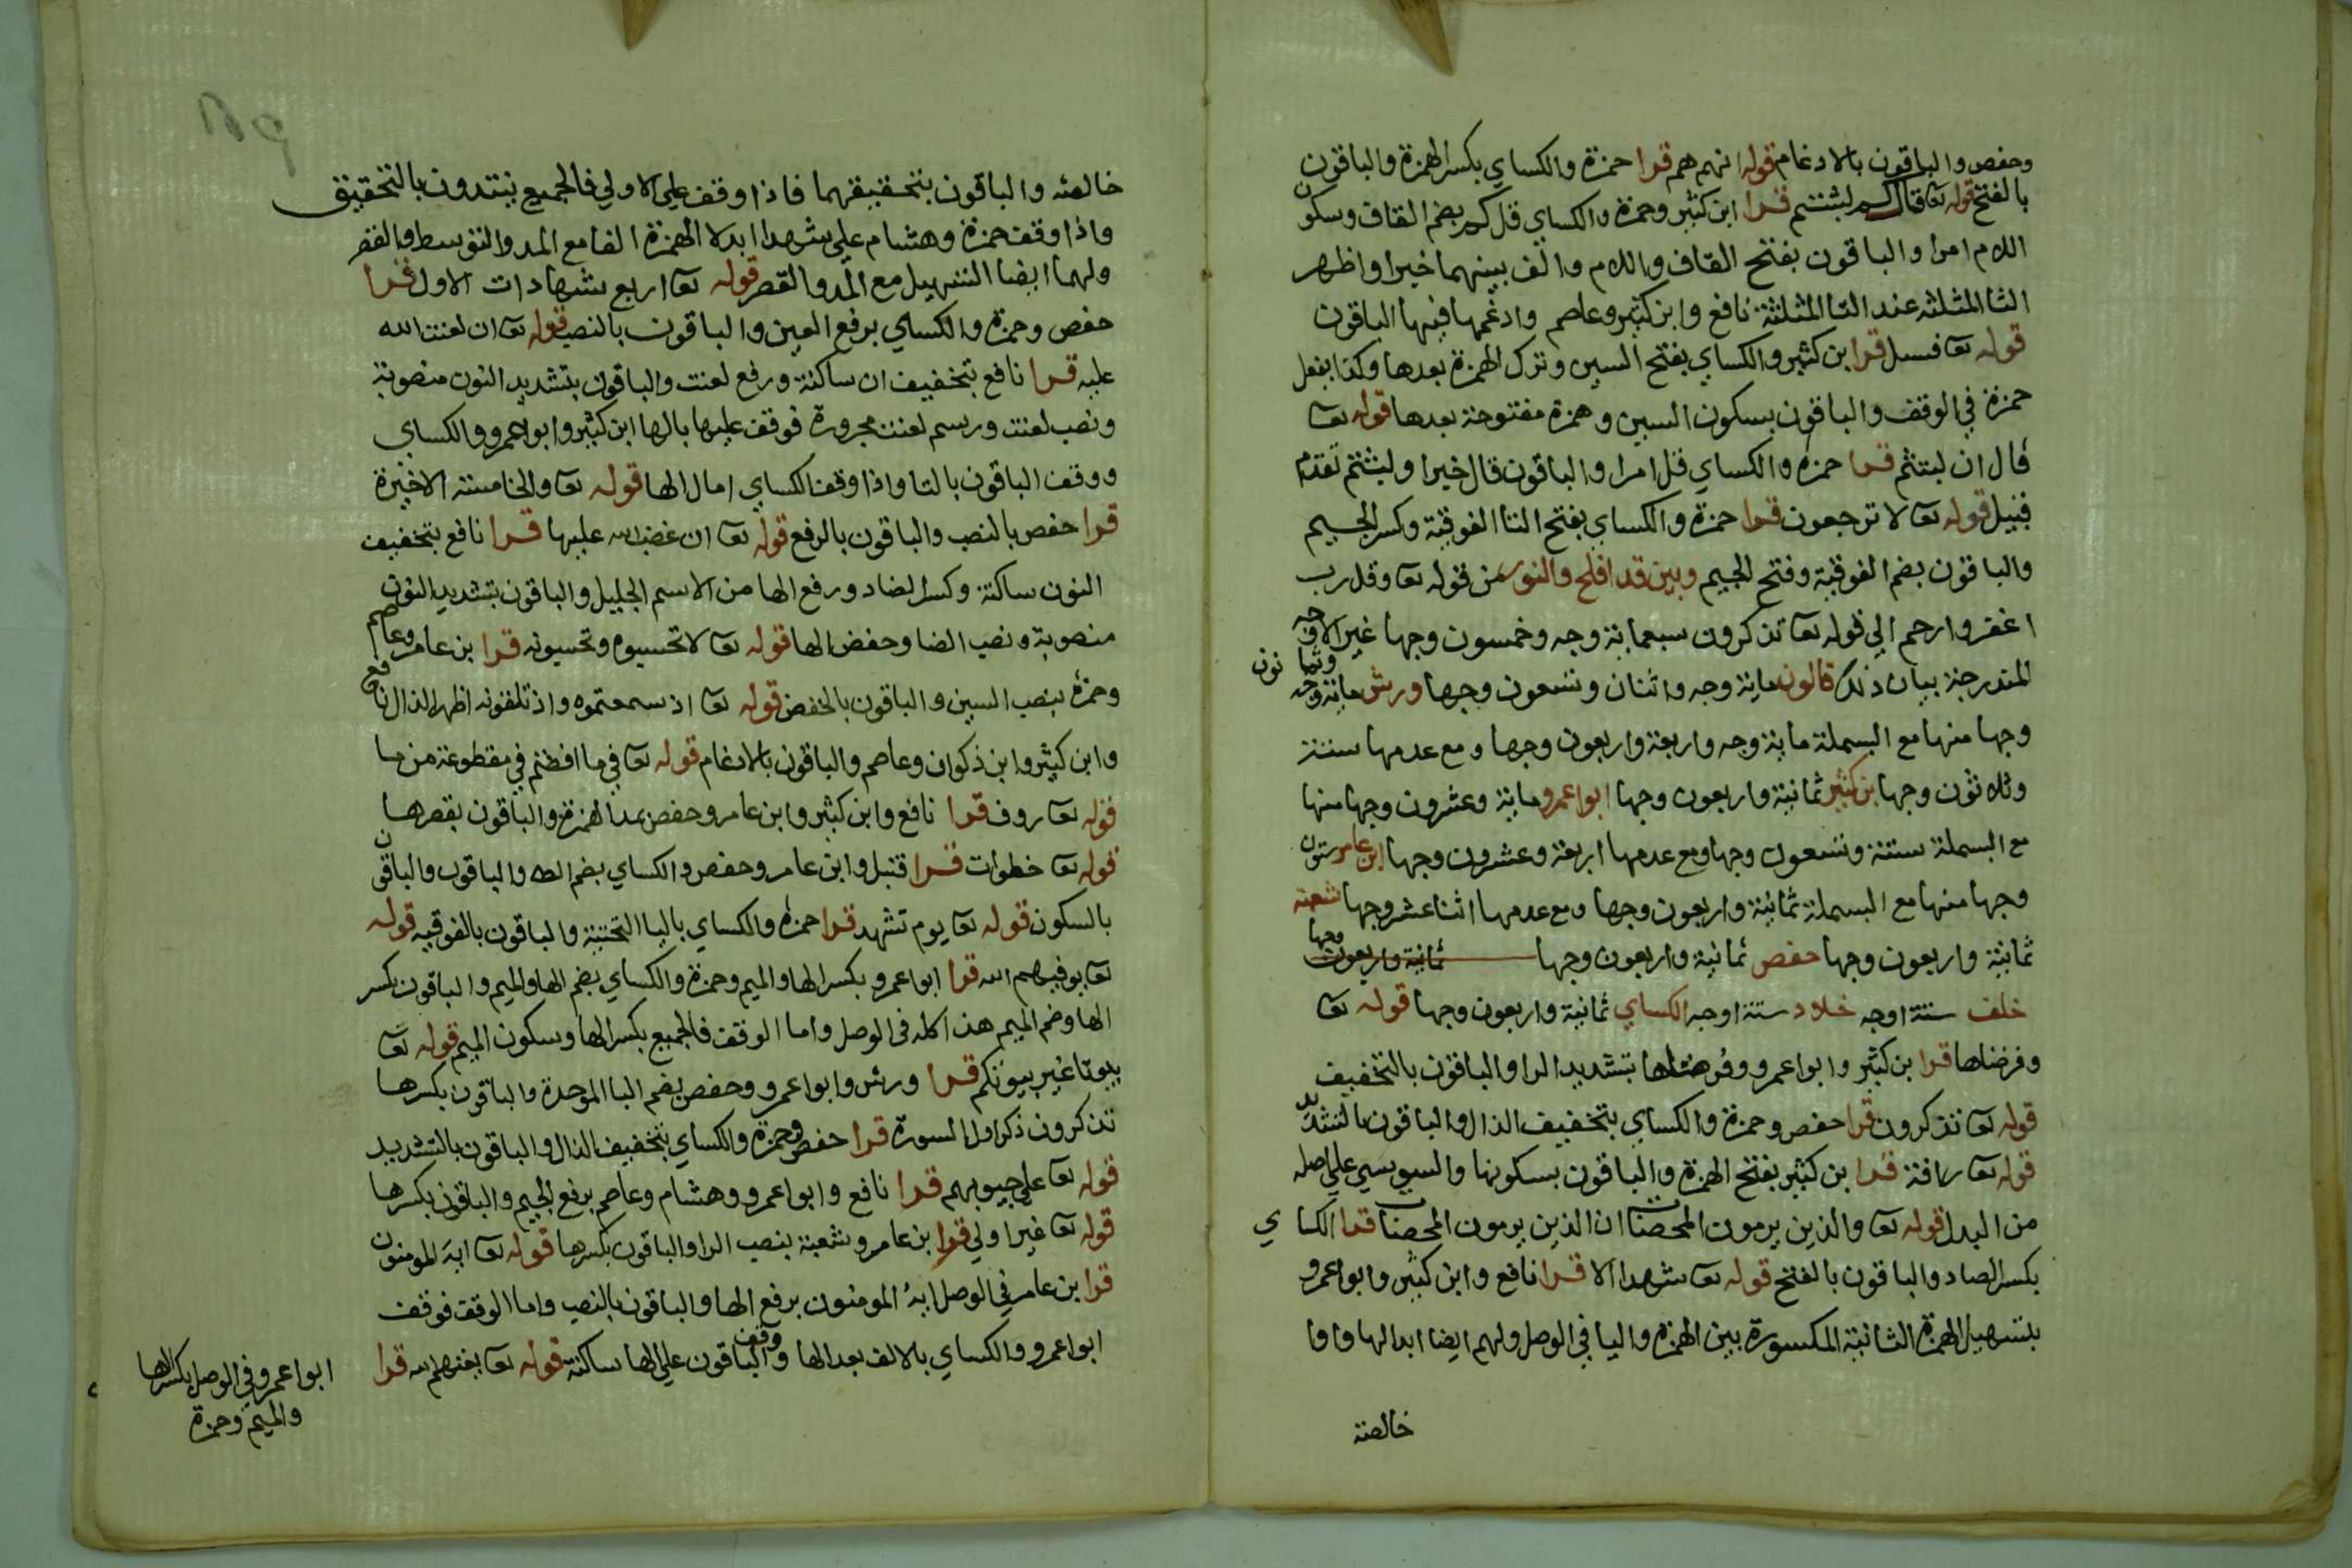 وحفص والباقون بالادغام قوله انهم هم قرا حمزة والكساي بكسر الهمزة والباقون
بالفتح قوله تعا قال كم لبثتم قرا ابن كثير وحمزة والكساي قل كم بضم القاف وسكون
اللام امرا والباقون بفتح القاف واللام والف بينهما خبرا واظهر
الثا المثلثة عند التا المثلثة نافع وابن كثير وعاصم وادغمها فيها الباقون
قوله تعا فسل قرا ابن كثير والكساي بفتح السين وترك الهمزة بعدها وكذا يفعل
حمزة في الوقف والباقون بسكون السين وهمزة مفتوحة بعدها قوله تعا
قال ان لبثتم قرا حمزة والكساي قل امرا والباقون قال خبرا ولبثتم تقدم
قبيل قوله تعا لا ترجعون قرا حمزة والكساي بفتح التا الفوقية وكسر الجيم
والباقون بضم الفوقية وفتح الجيم وبين قد افلح والنور من قوله تعا وقل رب
اغفر وارحم الي قوله تعا تذكرون سبعماية وجه وخمسون وجها غير الاوجه
المندرجة بيان ذلك قالون ماية وجه واثنان وتسعون وجها ورش ماية وجه وثما نون
وجها منها مع البسملة ماية وجه واربعة واربعون وجها ومع عدمها ستة
وثلاثون وجها ابن كثير ثمانية واربعون وجها ابوا عمرو ماية وعشرون وجها منها
مع البسملة ستة وتسعون وجها ومع عدمها اربعة وعشرون وجها ابن عامر ستون
وجها منها مع البسملة ثمانية واربعون وجها ومع عدمها اثنا عشر وجها شعبة
ثمانية واربعون وجها حفص ثمانية واربعون وجها ثمانية واربعون وجها
خلف ستة اوجه خلاد ستة اوجه الكساي ثمانية واربعون وجها قوله تعا
وفرضناها قرا بن كثير وابوا عمرو وفرضناها بتشديد الرا والباقون بالتخفيف
قوله تعا تذكرون قرا حفص وحمزة والكساي بتخفيف الذال والباقون بالتشديد
قوله تعا رافة قرا بن كثير بفتح الهمزة والباقون بسكونها والسوسي علي اصله
من البدل قوله تعا والذين يرمون المحصنات ان الذين يرمون المحصنات قرا الكساي
بكسر الصاد والباقون بالفتح قوله تعا شهدا الا قرا نافع وابن كثير وابوا عمرو
بتسهيل الهمزة الثانية المكسورة بين الهمزة واليا في الوصل ولهم ايضا ابدالها واوا
خالصة
خالصة والباقون بتحقيقهما فاذا وقف علي الاولي فالجميع يبتدون بالتحقيق
واذا وقف حمزة وهشام علي شهدا ابدلا الهمزة الفا مع المد والتوسط والقصر
ولهما ايضا التسهيل مع المد والقصر قوله تعا اربع شهادات الاول قرا
حفص وحمزة والكساي برفع العين والباقون بالنصب قوله تعا ان لعنت الله
عليه قرا نافع بتخفيف ان ساكنة ورفع لعنت والباقون بتشديد النون منصوبة
ونصب لعنت ورسم لعنت مجرورة فوقف عليها بالها ابن كثير وابوا عمرو والكساي
ووقف الباقون بالتا واذا وقف الكساي امال الها قوله تعا والخامسة الاخيرة
قرا حفص بالنصب والباقون بالرفع قوله تعا ان غضب الله عليها قرا نافع بتخفيف
النون ساكنة وكسر الضاد ورفع الها من الاسم الجليل والباقون بتشديد النون
منصوبة ونصب الضا وخفض الها قوله تعا لا تحسبوه وتحسبونه قرا بن عامر وعاصم
وحمزة بنصب السين والباقون بالخفض قوله تعا اذ سمعتموه واذ تلقونه اظهر الذال نافع
وابن كثير وابن ذكوان وعاصم والباقون بالادغام قوله تعا في ما افضتم في مقطوعة من ما
قوله تعا روف قرا نافع وابن كثير وابن عامر وحفص بمد الهمزة والباقون بقصرها
قوله تعا خطوات قرا قنبل وابن عامر وحفص والكساي بضم الطا والباقون والباقون
بالسكون قوله تعا يوم تشهد قرا حمزة والكساي باليا التحتية والباقون بالفوقية قوله
تعا يوفيهم الله قرا ابوا عمرو بكسر الها والميم وحمزة والكساي بضم الها والميم والباقون بكسر
الها وضم الميم هذا كله في الوصل واما الوقف فالجميع بكسر الها وسكون الميم قوله تعا
بيوتا غير بيوتكم قرا ورش وابوا عمرو وحفص بضم البا الموحدة والباقون بكسرها
تذكرون ذكر اول السورة قرا حفص وحمزة والكساي بتخفيف الذال والباقون بالتشديد
قوله تعا علي جيوبهم قرا نافع وابوا عمرو وهشام وعاصم برفع الجيم والباقون بكسرها
قوله تعا غير اولي قرا بن عامر وشعبة بنصب الرا والباقون بكسرها قوله تعا ايه المومنون
قرا بن عامر في الوصل ايه المومنون برفع الها والباقون بالنصب واما الوقف فوقف
ابوا عمرو والكساي بالالف بعد الها ووقف الباقون علي الها ساكنة قوله تعا يغنهم الله قرا
ابوا عمرو في الوصل بكسر الها
والميم وحمزة